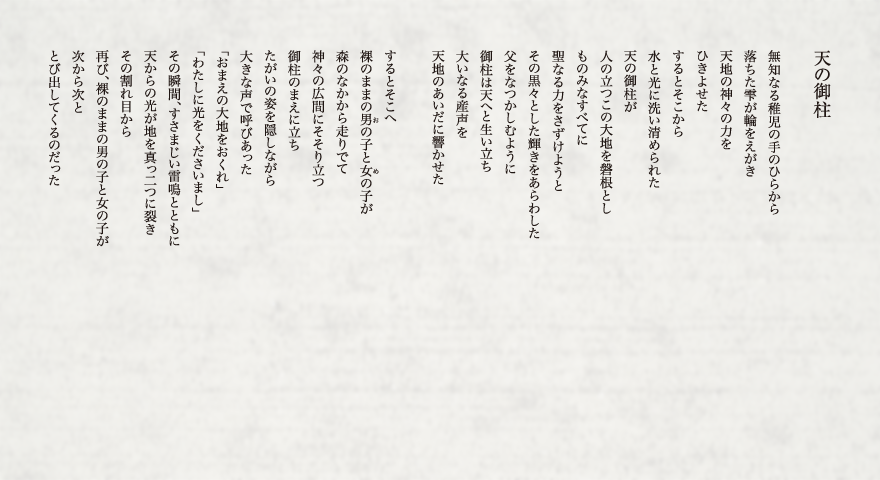 天の御柱
無知なる稚児の手のひらから
落ちた雫が輪をえがき
天地の神々の力を
ひきよせた
するとそこから
水と光に洗い清められた
天の御柱が
人の立つこの大地を磐根とし
ものみなすべてに
聖なる力をさずけようと
その黒々とした輝きをあらわした
父をなつかしむように
御柱は天へと生い立ち
大いなる産声を
天地のあいだに響かせた
するとそこへ
裸のままの男の子と女の子が
森のなかから走りでて
神々の広間にそそり立つ
御柱のまえに立ち
たがいの姿を隠しながら
大きな声で呼びあった
「おまえの大地をおくれ」
「わたしに光をくださいまし」
その瞬間、すさまじい雷鳴とともに
天からの光が地を真っ二つに裂き
その割れ目から
再び、裸のままの男の子と女の子が
次から次と
とび出してくるのだった